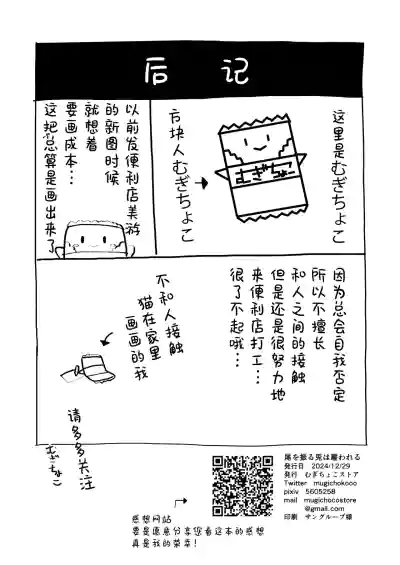 后记
这里是むぎちょこ
方块人むぎちょこ
むぎちょー
以前发便利店美游
的新图时候
就想着
要画成本…
这把总算是画出来了
因为总会自我否定
所以不擅长
和人之间的接触
但是还是很努力地
来便利店打工…
很了不起哦…
不和人接触
猫在家里
画画的我
请多多关注
むぎちょこ
感想网站
要是愿意分享您看这本的感想
真是我的荣幸！
尾を振る兎は雇われる
発行日 2024/12/29
発行 むぎちょこストア
Twitter mugichokooo
pixiv 5605258
mail mugichocostore
@gmail.com
印刷 サングループ様